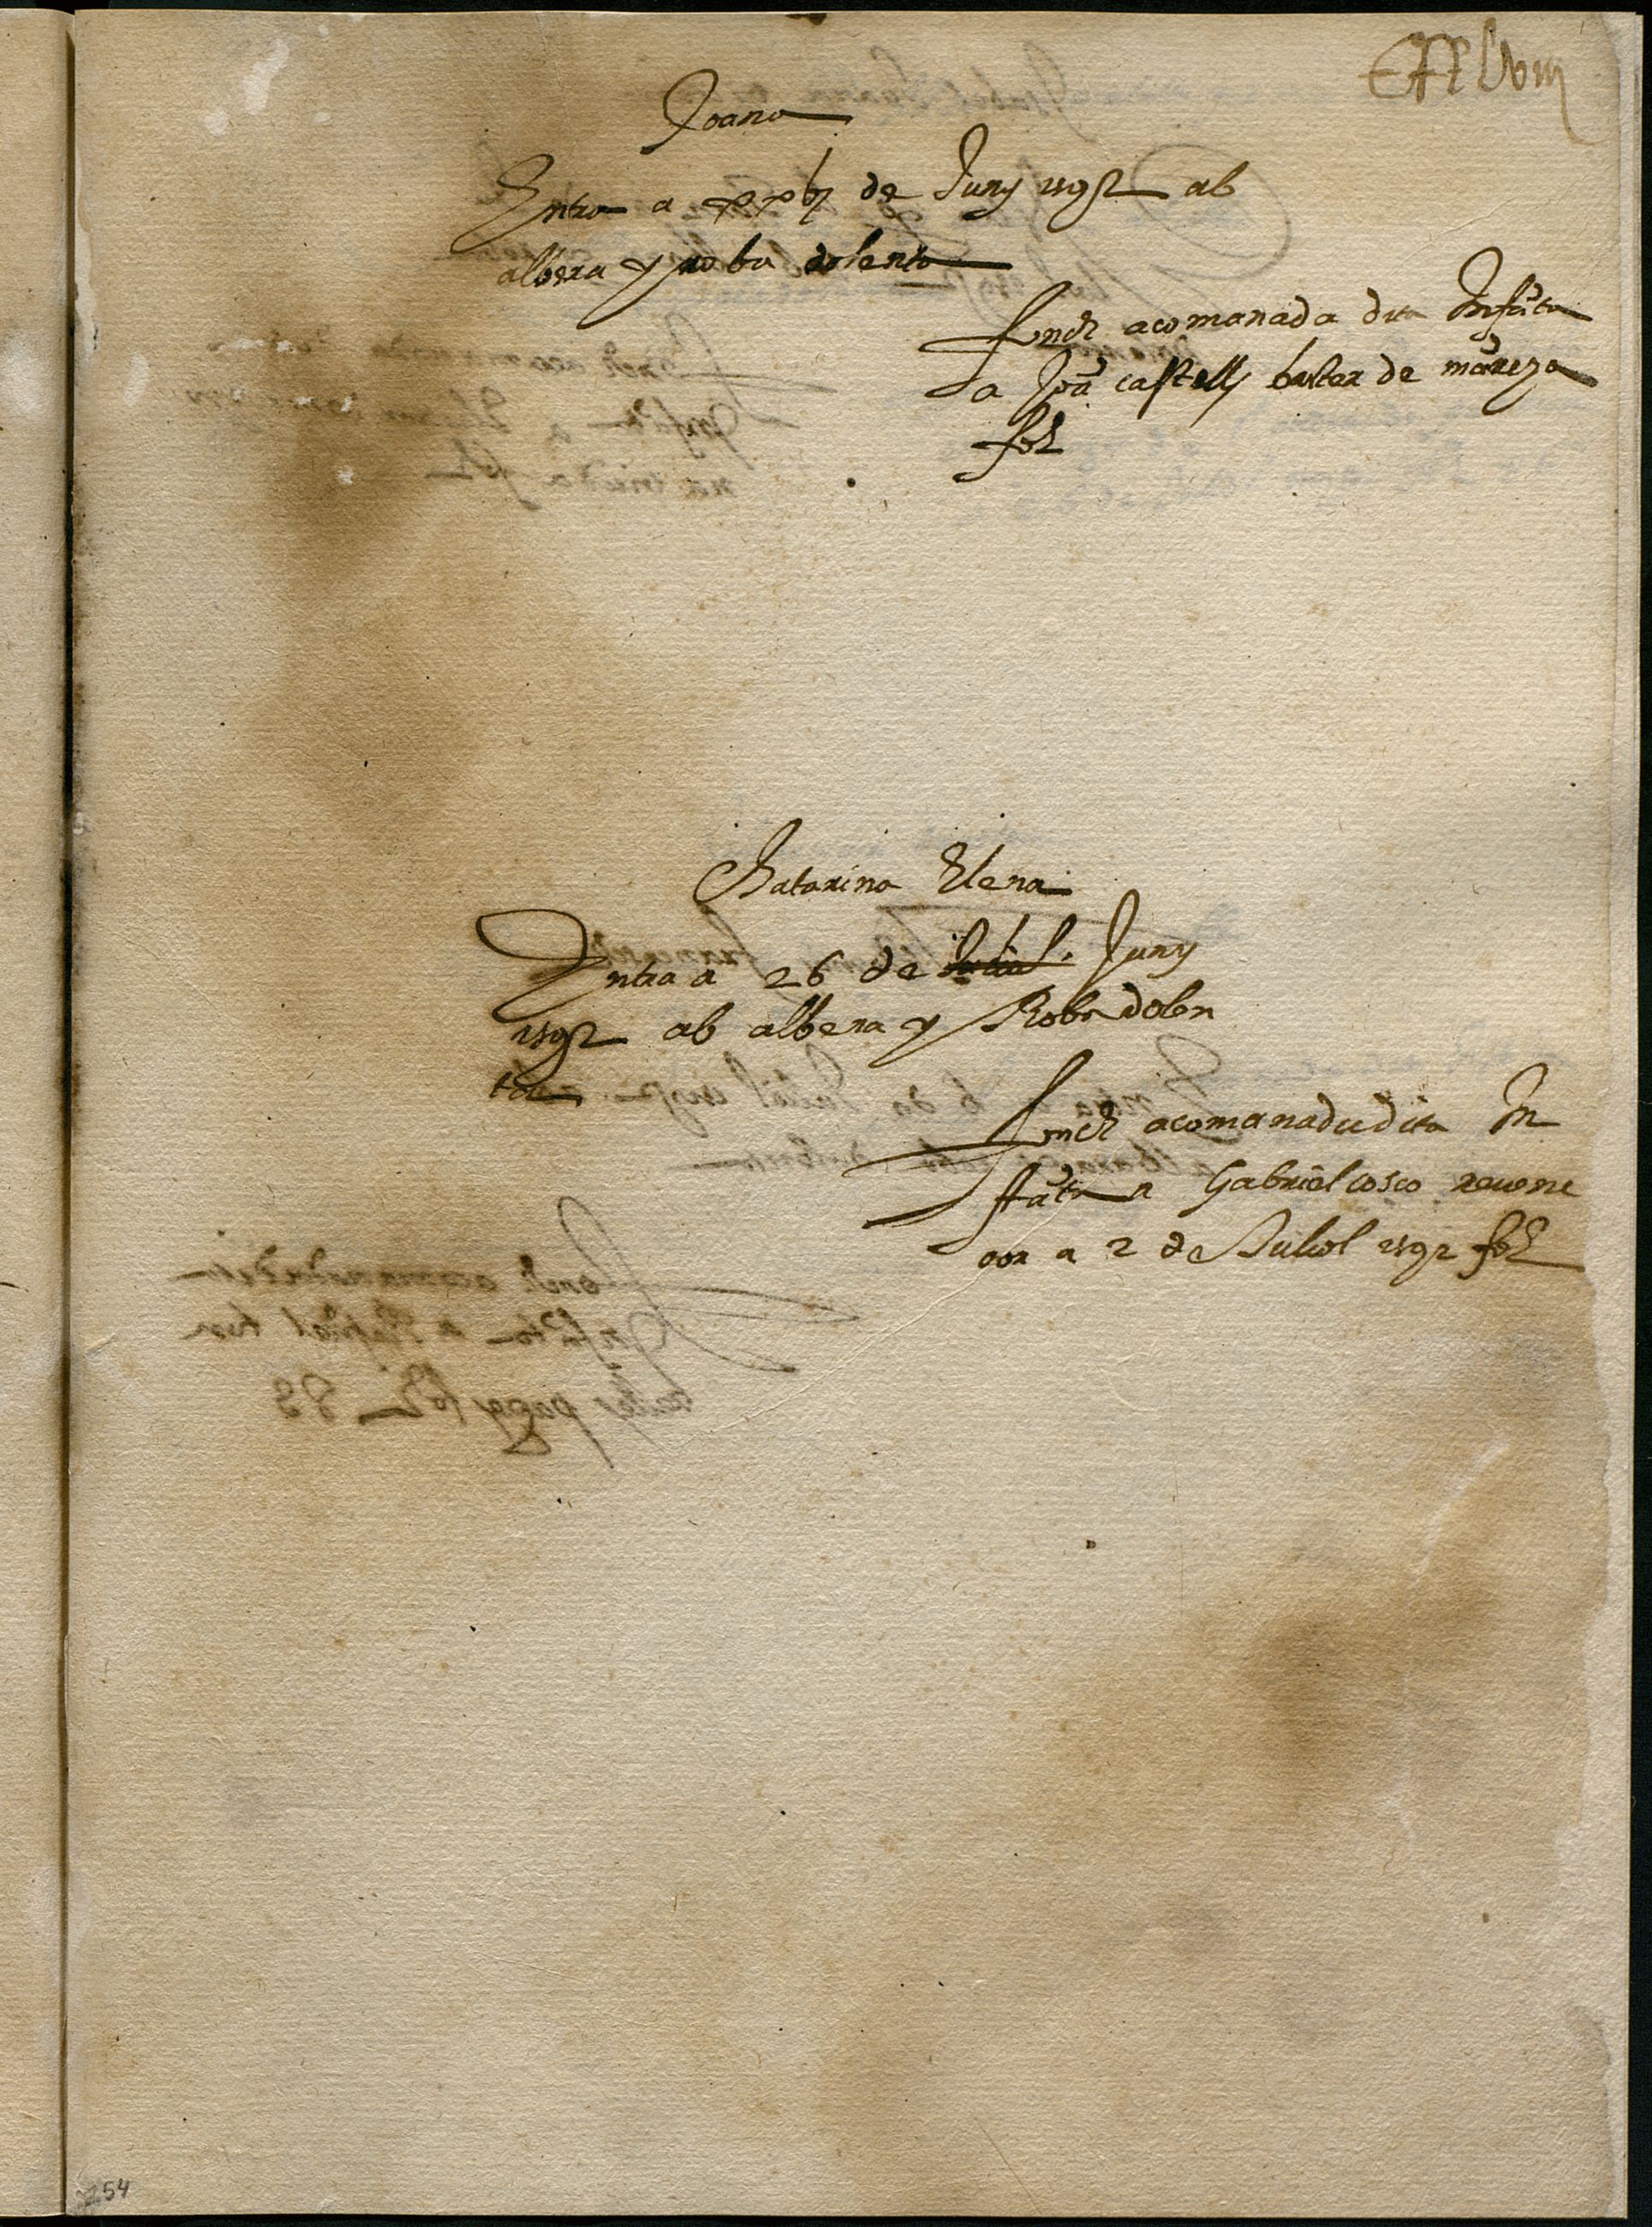 Joana
Entra a xxvj de Juny 1592 ab
albera y roba dolenta
fonch acomanada dita Infāta
a Joā castell baster de māreza
fol
Catarina Elena
Entra a 26 de Juliol Juny
1592 ab albera y Roba dolen
ta
fonch acomanada dita In
ffāta a Gabriel cosco revene
dor a 2 de Juliol 1592 fol
254